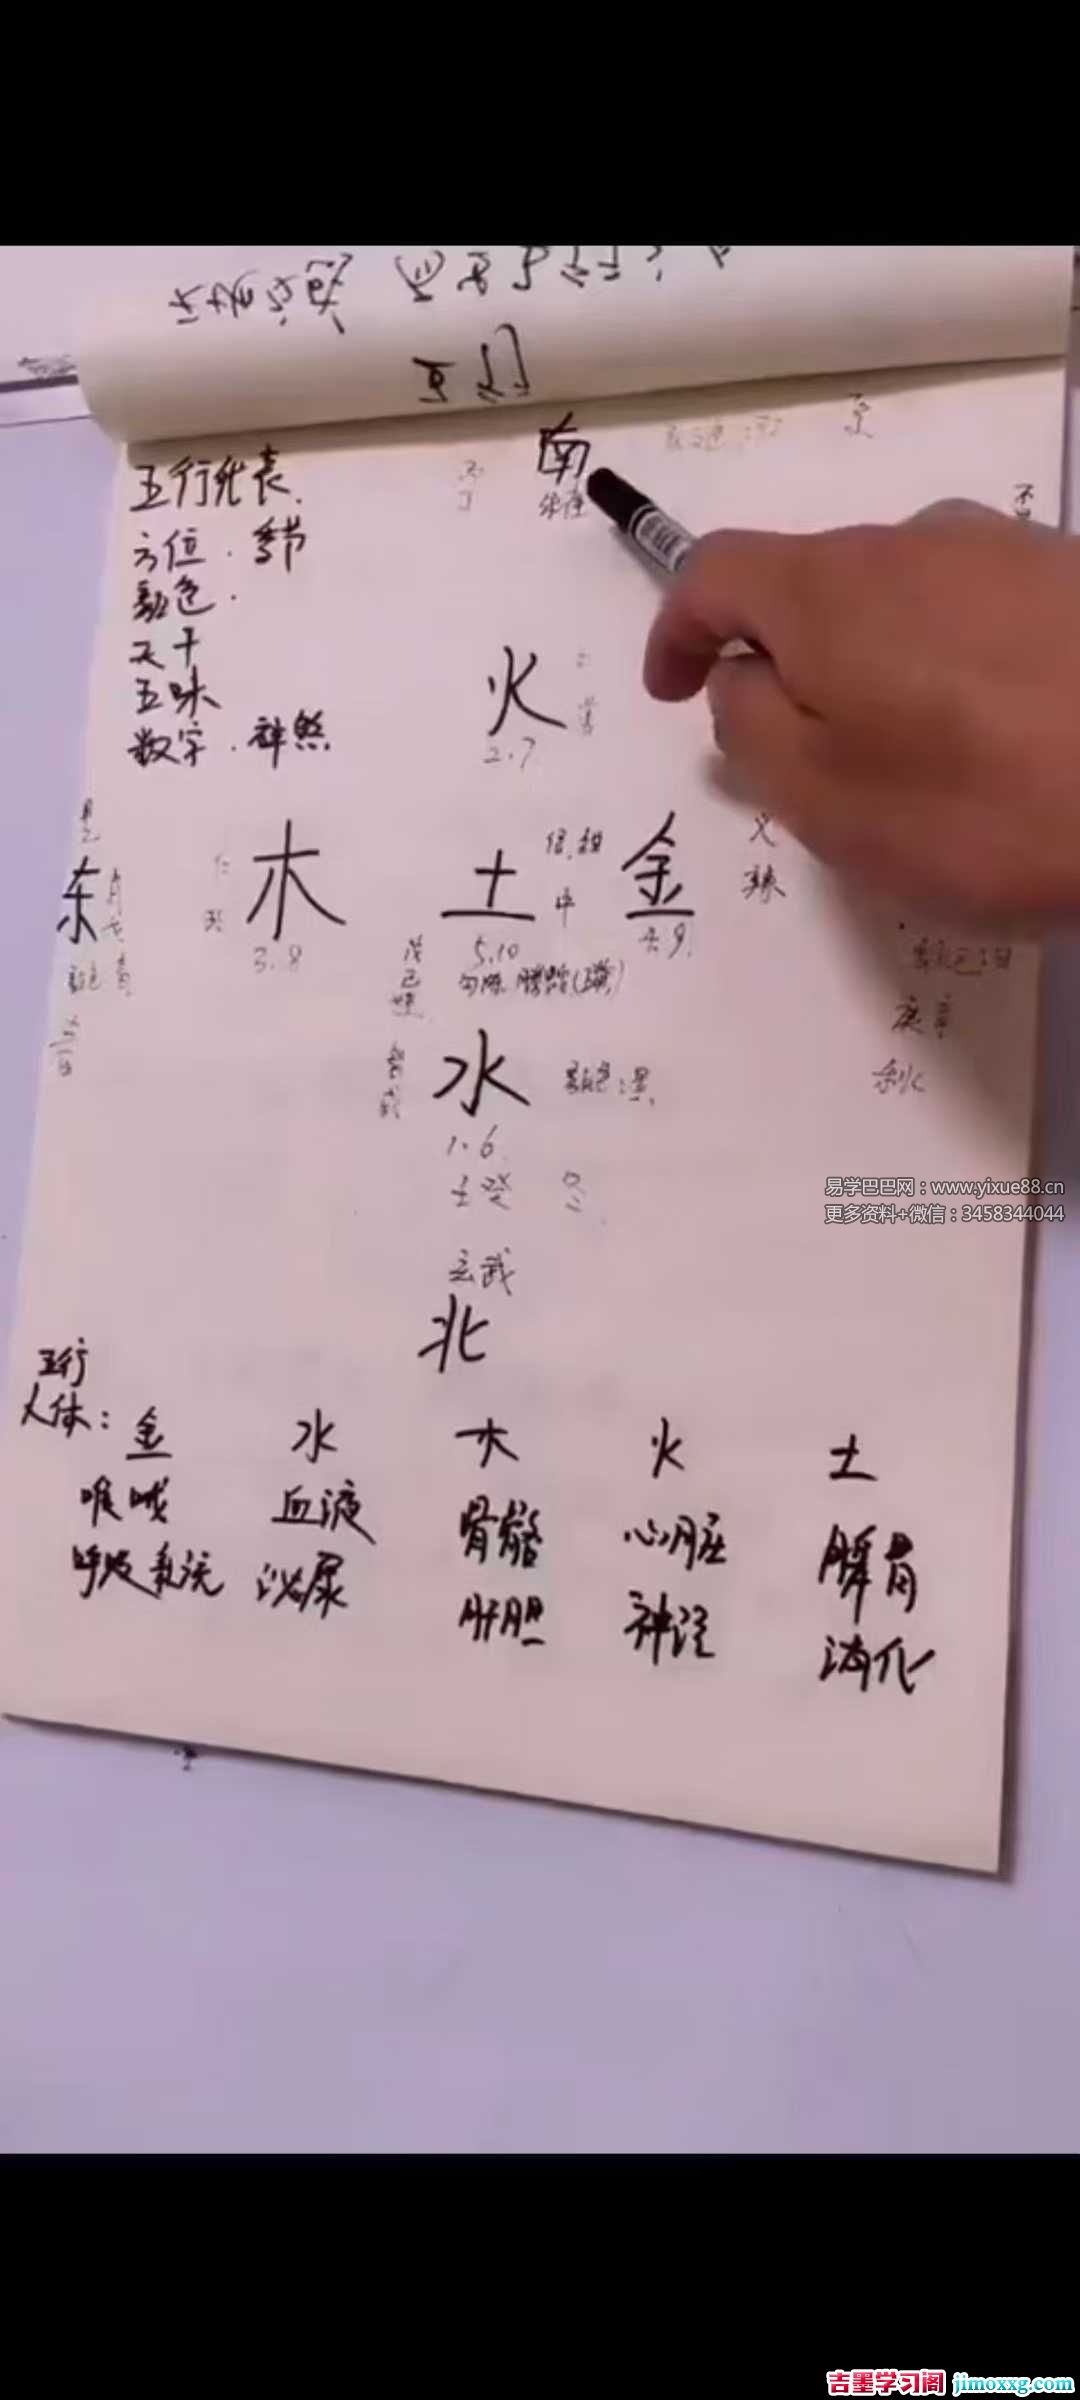 南
五行代表.
方位.季节
颜色.
天干
五味
数字.神煞
朱雀
颜色:红
丙
丁
火
2.7
甲乙
东
颜色青
木
3.8
土
5.10
信.甜
中
戊
己
勾陈 腾蛇(
金
4.9.
义
辣
颜色:白
庚辛
秋
水
颜色:黑
1.6
壬癸
冬
玄武
北
五行
人体:
金 水 木 火 土
喉咙 血液 骨骼 心脏 脾胃
呼吸系统 泌尿 肝胆 神经 消化
易学巴巴网:www.yixue88.cn
更多资料+微信:3458344044
吉墨学习阁 jimoxxg.com